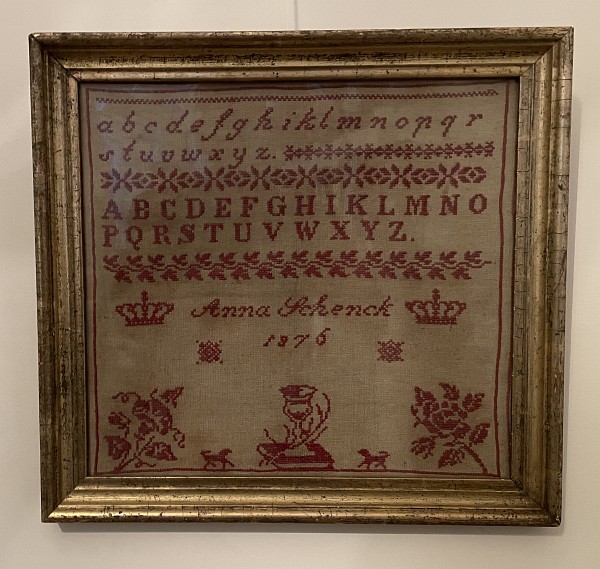 a b c d e f g h i k l m n o p q r
s t u v w x y z.
A B C D E F G H I K L M N O
P Q R S T U V W X Y Z.
Anna Schenck
1876